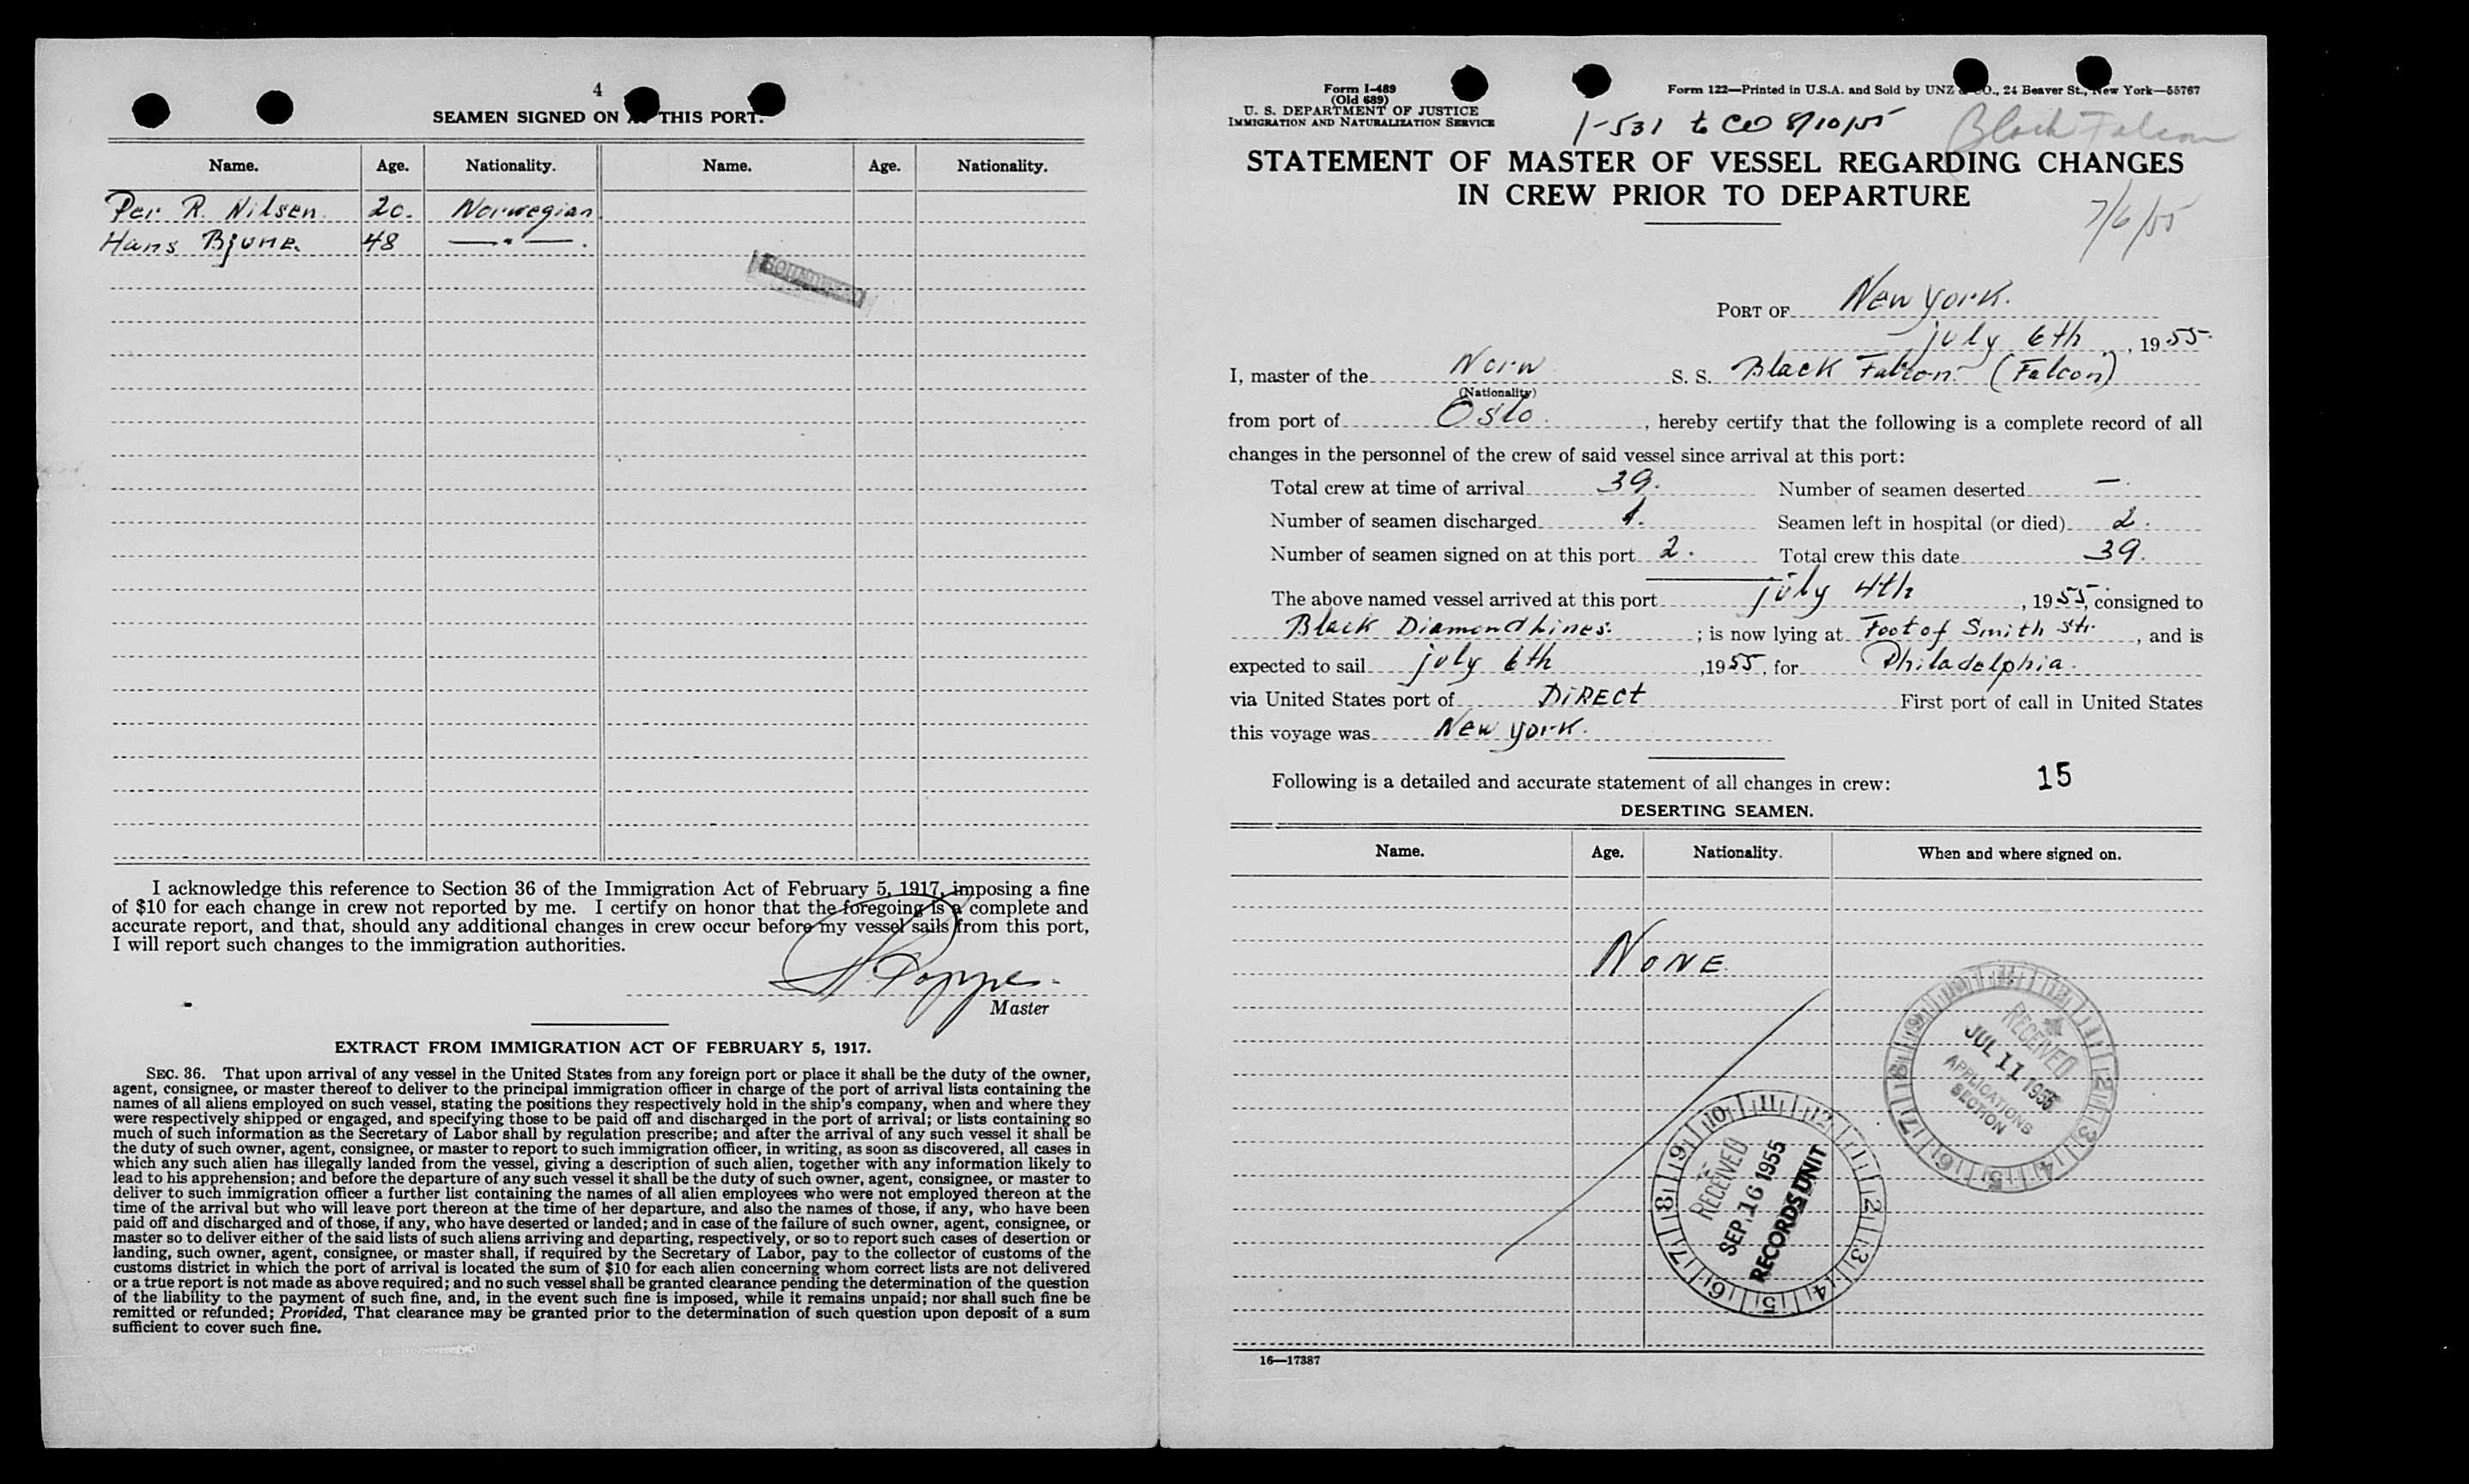 4
SEAMEN SIGNED ON AT THIS PORT.
Name. Age. Nationality. Name. Age. Nationality.
Per R. Nilsen. 20. Norwegian.
Hans Bjune. 48 —"—.
I acknowledge this reference to Section 36 of the Immigration Act of February 5, 1917, imposing a fine
of $10 for each change in crew not reported by me. I certify on honor that the foregoing is a complete and
accurate report, and that, should any additional changes in crew occur before my vessel sails from this port,
I will report such changes to the immigration authorities.
Master
EXTRACT FROM IMMIGRATION ACT OF FEBRUARY 5, 1917.
SEC. 36. That upon arrival of any vessel in the United States from any foreign port or place it shall be the duty of the owner,
agent, consignee, or master thereof to deliver to the principal immigration officer in charge of the port of arrival lists containing the
names of all aliens employed on such vessel, stating the positions they respectively hold in the ship's company, when and where they
were respectively shipped or engaged, and specifying those to be paid off and discharged in the port of arrival; or lists containing so
much of such information as the Secretary of Labor shall by regulation prescribe; and after the arrival of any such vessel it shall be
the duty of such owner, agent, consignee, or master to report to such immigration officer, in writing, as soon as discovered, all cases in
which any such alien has illegally landed from the vessel, giving a description of such alien, together with any information likely to
lead to his apprehension; and before the departure of any such vessel it shall be the duty of such owner, agent, consignee, or master to
deliver to such immigration officer a further list containing the names of all alien employees who were not employed thereon at the
time of the arrival but who will leave port thereon at the time of her departure, and also the names of those, if any, who have been
paid off and discharged and of those, if any, who have deserted or landed; and in case of the failure of such owner, agent, consignee, or
master so to deliver either of the said lists of such aliens arriving and departing, respectively, or so to report such cases of desertion or
landing, such owner, agent, consignee, or master shall, if required by the Secretary of Labor, pay to the collector of customs of the
customs district in which the port of arrival is located the sum of $10 for each alien concerning whom correct lists are not delivered
or a true report is not made as above required; and no such vessel shall be granted clearance pending the determination of the question
of the liability to the payment of such fine, and, in the event such fine is imposed, while it remains unpaid; nor shall such fine be
remitted or refunded; Provided, That clearance may be granted prior to the determination of such question upon deposit of a sum
sufficient to cover such fine.
Form I-489
(Old 689)
U. S. DEPARTMENT OF JUSTICE
IMMIGRATION AND NATURALIZATION SERVICE
Form 122—Printed in U.S.A. and Sold by UNZ & CO., 24 Beaver St., New York—55767
1-531 to CO 8/10/55
Black Falcon
STATEMENT OF MASTER OF VESSEL REGARDING CHANGES
IN CREW PRIOR TO DEPARTURE
7/6/55
PORT OF New York.
July 6th, 1955.
I, master of the Norw S. S. Black Falcon (Falcon)
(Nationality)
from port of Oslo, hereby certify that the following is a complete record of all
changes in the personnel of the crew of said vessel since arrival at this port:
Total crew at time of arrival 39. Number of seamen deserted —
Number of seamen discharged 1. Seamen left in hospital (or died) 2.
Number of seamen signed on at this port 2. Total crew this date 39.
The above named vessel arrived at this port July 4th, 1955, consigned to
Black Diamond Lines; is now lying at Foot of Smith str., and is
expected to sail July 6th, 1955, for Philadelphia.
via United States port of DIRECT First port of call in United States
this voyage was New York.
Following is a detailed and accurate statement of all changes in crew: 15
DESERTING SEAMEN.
Name. Age. Nationality. When and where signed on.
NONE
RECEIVED
JUL 11 1955
APPLICATIONS
SECTION
RECEIVED
SEP 16 1955
RECORDS UNIT
16—17387